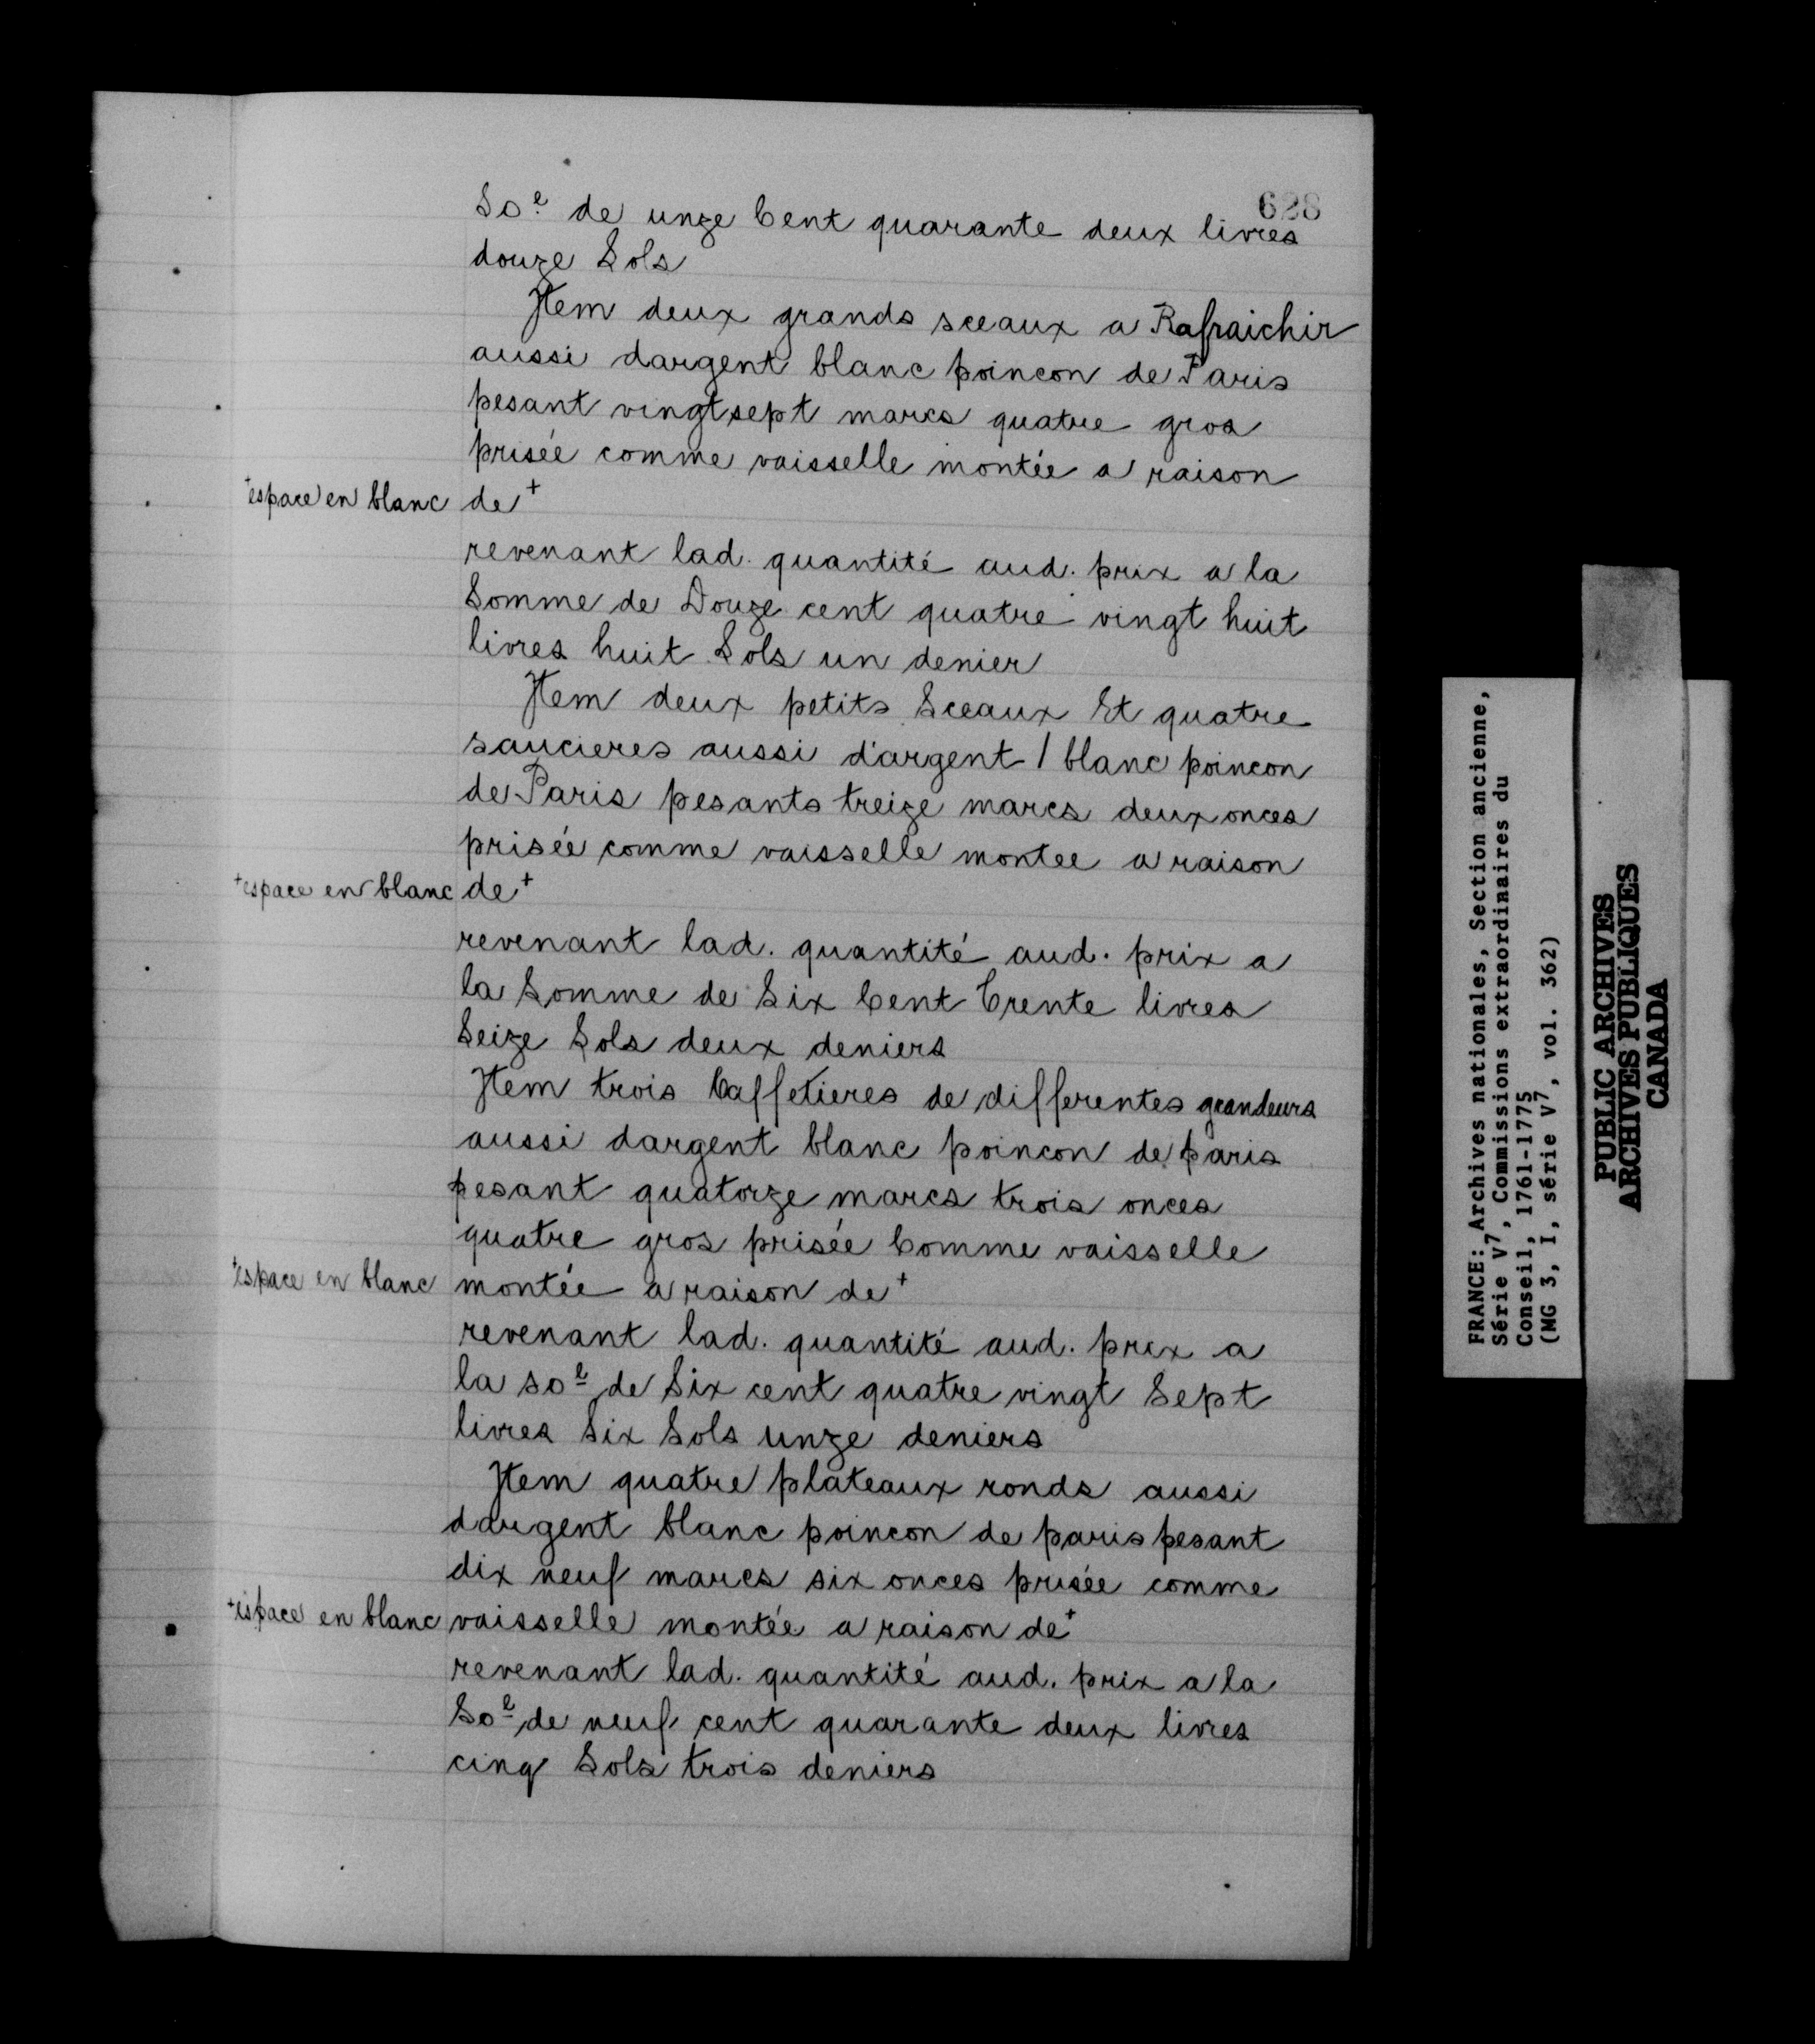 628
So.e de unze Cent quarante deux livres
douze Sols
Jtem deux grands sceaux a Rafraichir
aussi dargent blanc poincon de Paris
pesant vingt sept marcs quatre gros
prisée comme vaisselle montée a raison
+espace en blanc de+
revenant lad. quantité aud. prix a la
Somme de Douze cent quatre vingt huit
livres huit Sols un denier
Jtem deux petits Sceaux Et quatre
saucieres aussi d'argent / blanc poincon
de Paris pesants treize marcs deux onces
prisée comme vaisselle montee a raison
+espace en blanc de+
revenant lad. quantité aud. prix a
la Somme de Six Cent Trente livres
Seize Sols deux deniers
Jtem trois Caffetieres de differentes grandeurs
aussi dargent blanc poincon de paris
pesant quatorze marcs trois onces
quatre gros prisée Comme vaisselle
+espace en blanc montée a raison de+
revenant lad. quantité aud. prix a
la so.e de Six cent quatre vingt Sept
livres Six Sols unze deniers
Jtem quatre plateaux ronds aussi
dargent blanc poincon de paris pesant
dix neuf marcs six onces prisée comme
+espace en blanc vaisselle montée a raison de+
revenant lad. quantité aud. prix a la
So.e de neuf cent quarante deux livres
cinq Sols trois deniers
FRANCE: Archives nationales, Section ancienne,
Série V7, Commissions extraordinaires du
Conseil, 1761-1775
(MG 3, I, série V7, vol. 362)
PUBLIC ARCHIVES
ARCHIVES PUBLIQUES
CANADA